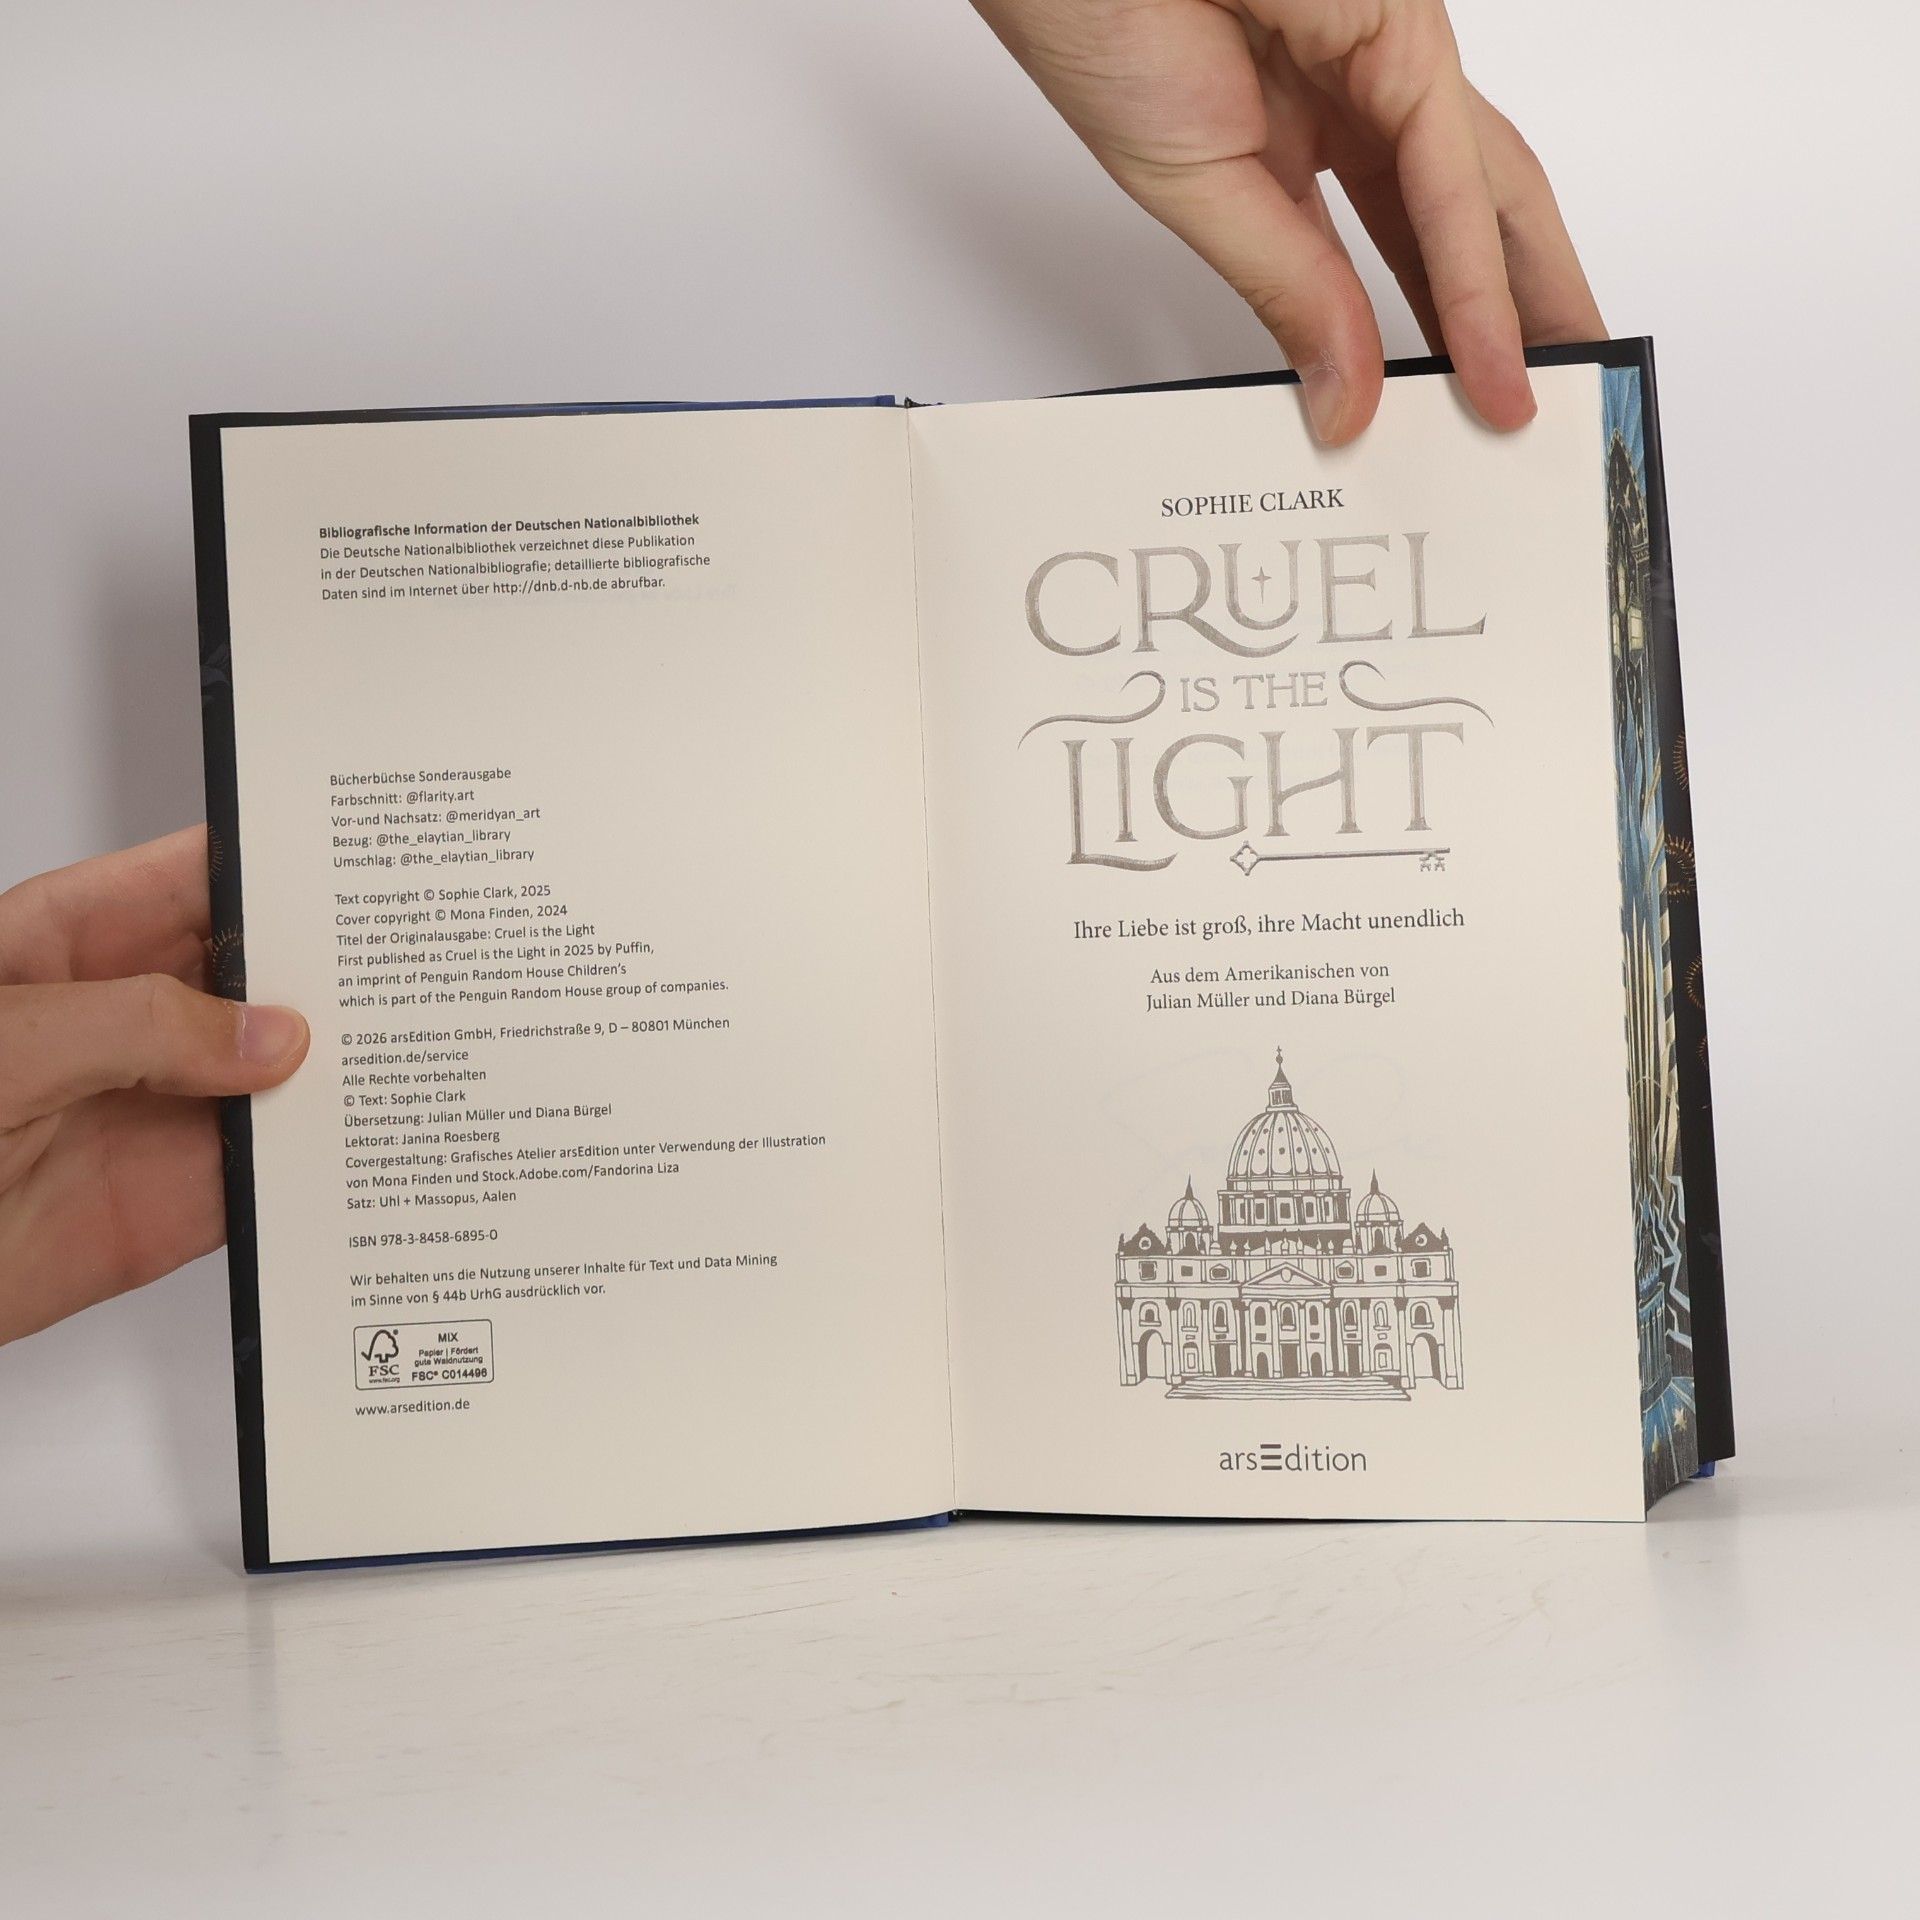 Bibliografische Information der Deutschen Nationalbibliothek
Die Deutsche Nationalbibliothek verzeichnet diese Publikation
in der Deutschen Nationalbibliografie; detaillierte bibliografische
Daten sind im Internet über http://dnb.d-nb.de abrufbar.
Bücherbüchse Sonderausgabe
Farbschnitt: @flarity.art
Vor-und Nachsatz: @meridyan_art
Bezug: @the_elaytian_library
Umschlag: @the_elaytian_library
Text copyright © Sophie Clark, 2025
Cover copyright © Mona Finden, 2024
Titel der Originalausgabe: Cruel is the Light
First published as Cruel is the Light in 2025 by Puffin,
an imprint of Penguin Random House Children's
which is part of the Penguin Random House group of companies.
© 2026 arsEdition GmbH, Friedrichstraße 9, D – 80801 München
arsedition.de/service
Alle Rechte vorbehalten
© Text: Sophie Clark
Übersetzung: Julian Müller und Diana Bürgel
Lektorat: Janina Roesberg
Covergestaltung: Grafisches Atelier arsEdition unter Verwendung der Illustration
von Mona Finden und Stock.Adobe.com/Fandorina Liza
Satz: Uhl + Massopus, Aalen
ISBN 978-3-8458-6895-0
Wir behalten uns die Nutzung unserer Inhalte für Text und Data Mining
im Sinne von § 44b UrhG ausdrücklich vor.
FSC
www.fsc.org
MIX
Papier | Fördert
gute Waldnutzung
FSC® C014496
www.arsedition.de
SOPHIE CLARK
CRUEL
IS THE
LIGHT
Ihre Liebe ist groß, ihre Macht unendlich
Aus dem Amerikanischen von
Julian Müller und Diana Bürgel
arsEdition